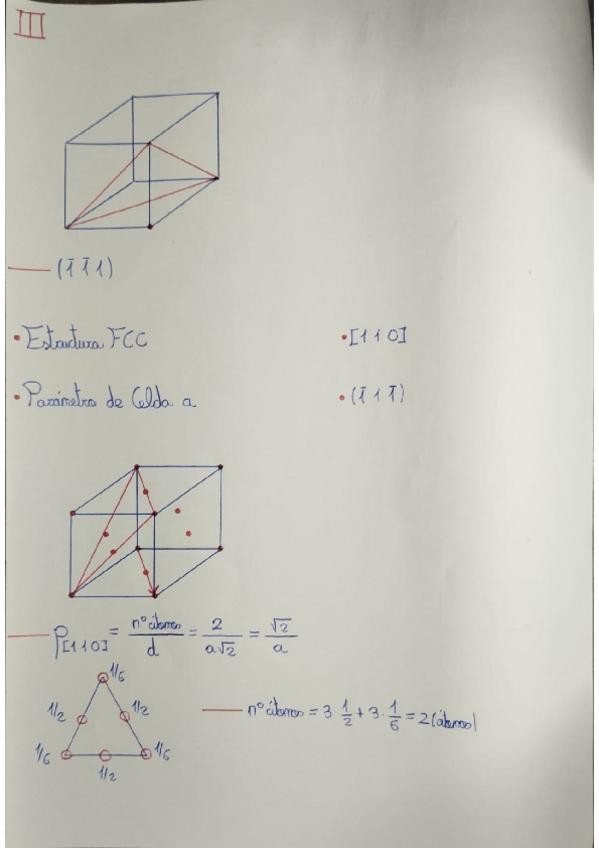 III
(1̄ 1̄ 1)
• Estructura FCC
• [1 1 0]
• Parámetro de Celda a
• (1̄ 1 1̄)
ρ[110] = nº átomos / d = 2 / a√2 = √2 / a
1/6
1/2 1/2
nº átomos = 3·1/2 + 3·1/6 = 2 (átomos)
1/6 1/6
1/2